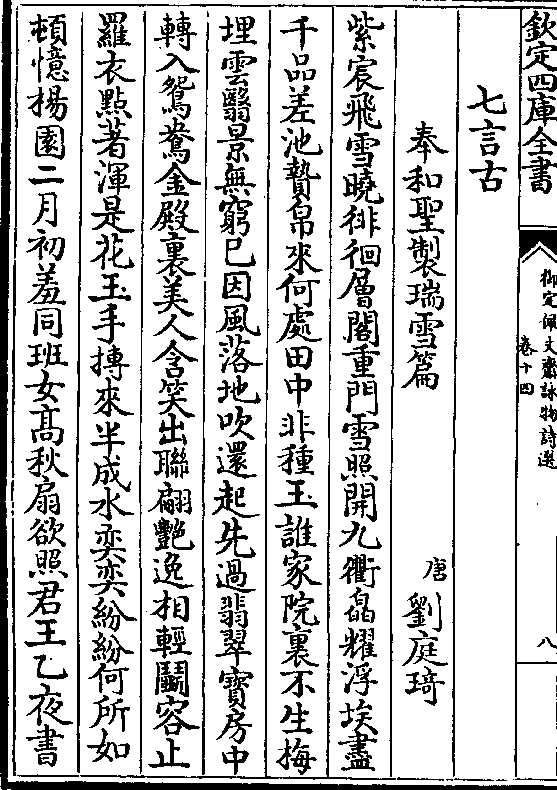 欽定四庫全書
御定佩文齋詠物詩選
卷十四
八
七言古
奉和聖製瑞雪篇
唐 劉庭琦
紫宸飛雪曉徘徊層閣重門雪照開九衢皛耀浮埃盡
千品差池贄帛來何處田中非種玉誰家院裏不生梅
埋雲翳景無窮巳因風落地吹還起先過翡翠寶房中
轉入鴛鴦金殿裏美人含笑出聯翩艷逸相輕鬭容止
羅衣點著渾是花玉手摶來半成水奕奕紛紛何所如
頓憶揚園二月初羞同班女髙秋扇欲照君王乙夜書